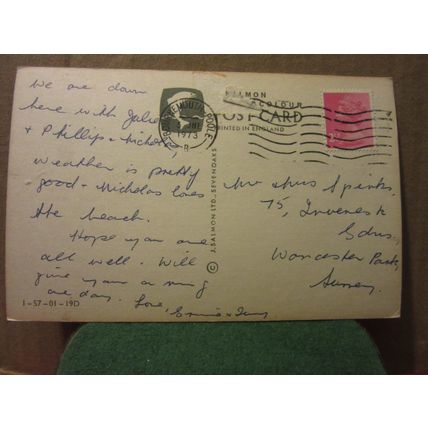 We are down
here with Julie
+ Phillip + Nicholas,
weather is pretty
good - Nicholas loves
the beach.
Hope you are
all well. Will
give you a ring
one day. Love,
1-57-01-19D
© J. SALMON LTD., SEVENOAKS
BOURNEMOUTH POOLE
JNE
1973
B
SALMON
COLOUR
POST CARD
PRINTED IN ENGLAND
Mr + Mrs Spinks,
75, Inveresk
Gdns,
Worcester Park,
Surrey.